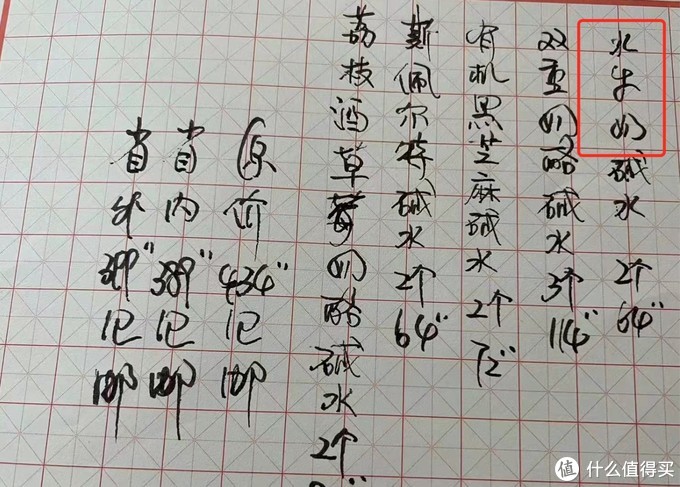 水牛奶碱水2个64"
双重奶酪碱水3个114"
有机黑芝麻碱水2个72"
斯佩尔特碱水2个64"
荔枝酒草莓奶酪碱水2个
原价434"包邮
省内389"包邮
省外399"包邮
值 什么值得买